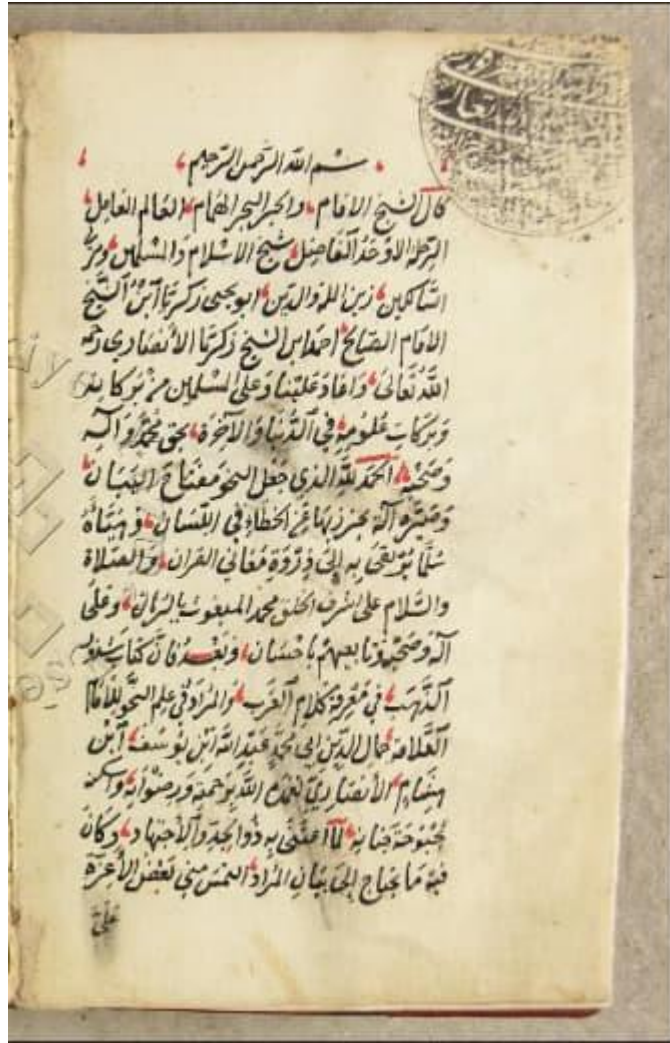 بسم الله الرحمن الرحيم
قال الشيخ الامام والحبر البحر الهمام العالم العامل
الرحلة الاوحد الفاضل شيخ الاسلام والمسلمين ومربي
السالكين زين الملة والدين ابو يحيى زكريا ابن الشيخ
الامام الصالح احمد ابن الشيخ زكريا الأنصاري رحمه
الله تعالى واعاد علينا وعلى المسلمين من بركاته
وبركات علومه في الدنيا والآخرة بحق محمد وآله
وصحبه الحمد لله الذي جعل النحو مفتاح البيان
وصيره آلة يحترز بها عن الخطاء في اللسان وهيأه
سلما يرتقى به إلى ذروة معاني القران والصلاة
والسلام على اشرف الخلق محمد المبعوث بالبرهان وعلى
آله وصحبه وتابعيهم باحسان وبعد فان كتاب شذور
الذهب في معرفة كلام العرب والمراد في علم النحو للامام
العلامة جمال الدين ابي محمد عبد الله ابن يوسف ابن
هشام الأنصاري تغمدهم الله برحمته ورضوانه واسكنه
بحبوحة جنانه لما اعتنى به ذوا الجد والاجتهاد وكان
فيه ما يحتاج إلى بيان المراد التمس مني بعض الأعزة
علي